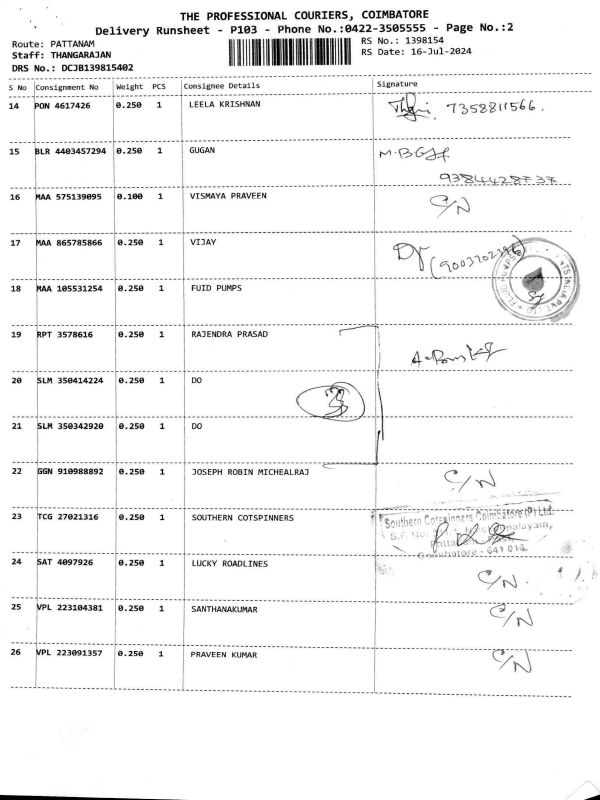 THE PROFESSIONAL COURIERS, COIMBATORE
Delivery Runsheet - P103 - Phone No.:0422-3505555 - Page No.:2
Route: PATTANAM
RS No.: 1398154
Staff: THANGARAJAN
RS Date: 16-Jul-2024
DRS No.: DCJB139815402
S No Consignment No Weight PCS Consignee Details Signature
14 PON 4617426 0.250 1 LEELA KRISHNAN 7358811566.
15 BLR 4403457294 0.250 1 GUGAN M.B
9384428737
16 MAA 575139095 0.100 1 VISMAYA PRAVEEN C/N
17 MAA 865785866 0.250 1 VIJAY
18 MAA 105531254 0.250 1 FUID PUMPS
19 RPT 3578616 0.250 1 RAJENDRA PRASAD
20 SLM 350414224 0.250 1 DO
21 SLM 350342920 0.250 1 DO
22 GGN 910988892 0.250 1 JOSEPH ROBIN MICHEALRAJ C/N
23 TCG 27021316 0.250 1 SOUTHERN COTSPINNERS
Southern Cotspinners Coimbatore (P) Ltd.
S.F. No:
Coimbatore - 641 016
24 SAT 4097926 0.250 1 LUCKY ROADLINES C/N
25 VPL 223104381 0.250 1 SANTHANAKUMAR C/N
26 VPL 223091357 0.250 1 PRAVEEN KUMAR C/N